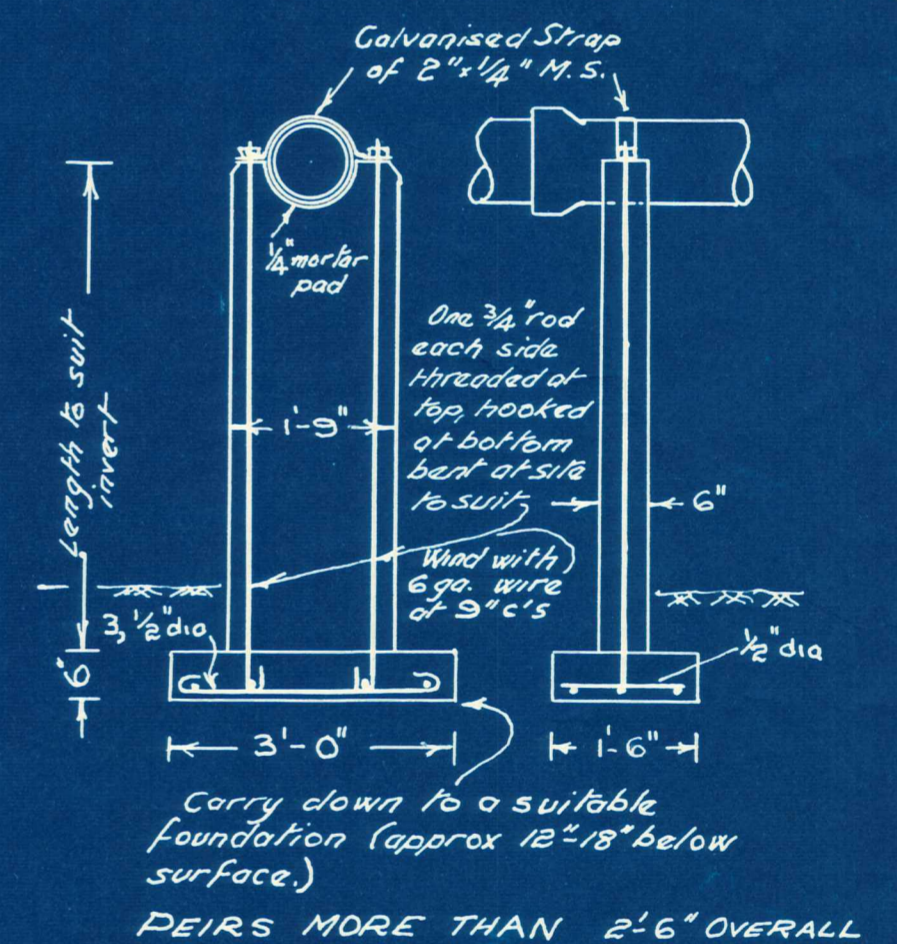 Galvanised Strap
of 2"x1/4" M.S.
1/4" mortar
pad
Length to suit
invert
1'-9"
One 3/4" rod
each side
threaded at
top, hooked
at bottom
bent at site
to suit
6"
Wind with
6 ga. wire
at 9" c's
3, 1/2" dia
1/2" dia
6"
3'-0"
1'-6"
Carry down to a suitable
foundation (approx 12"-18" below
surface.)
PEIRS MORE THAN 2'-6" OVERALL